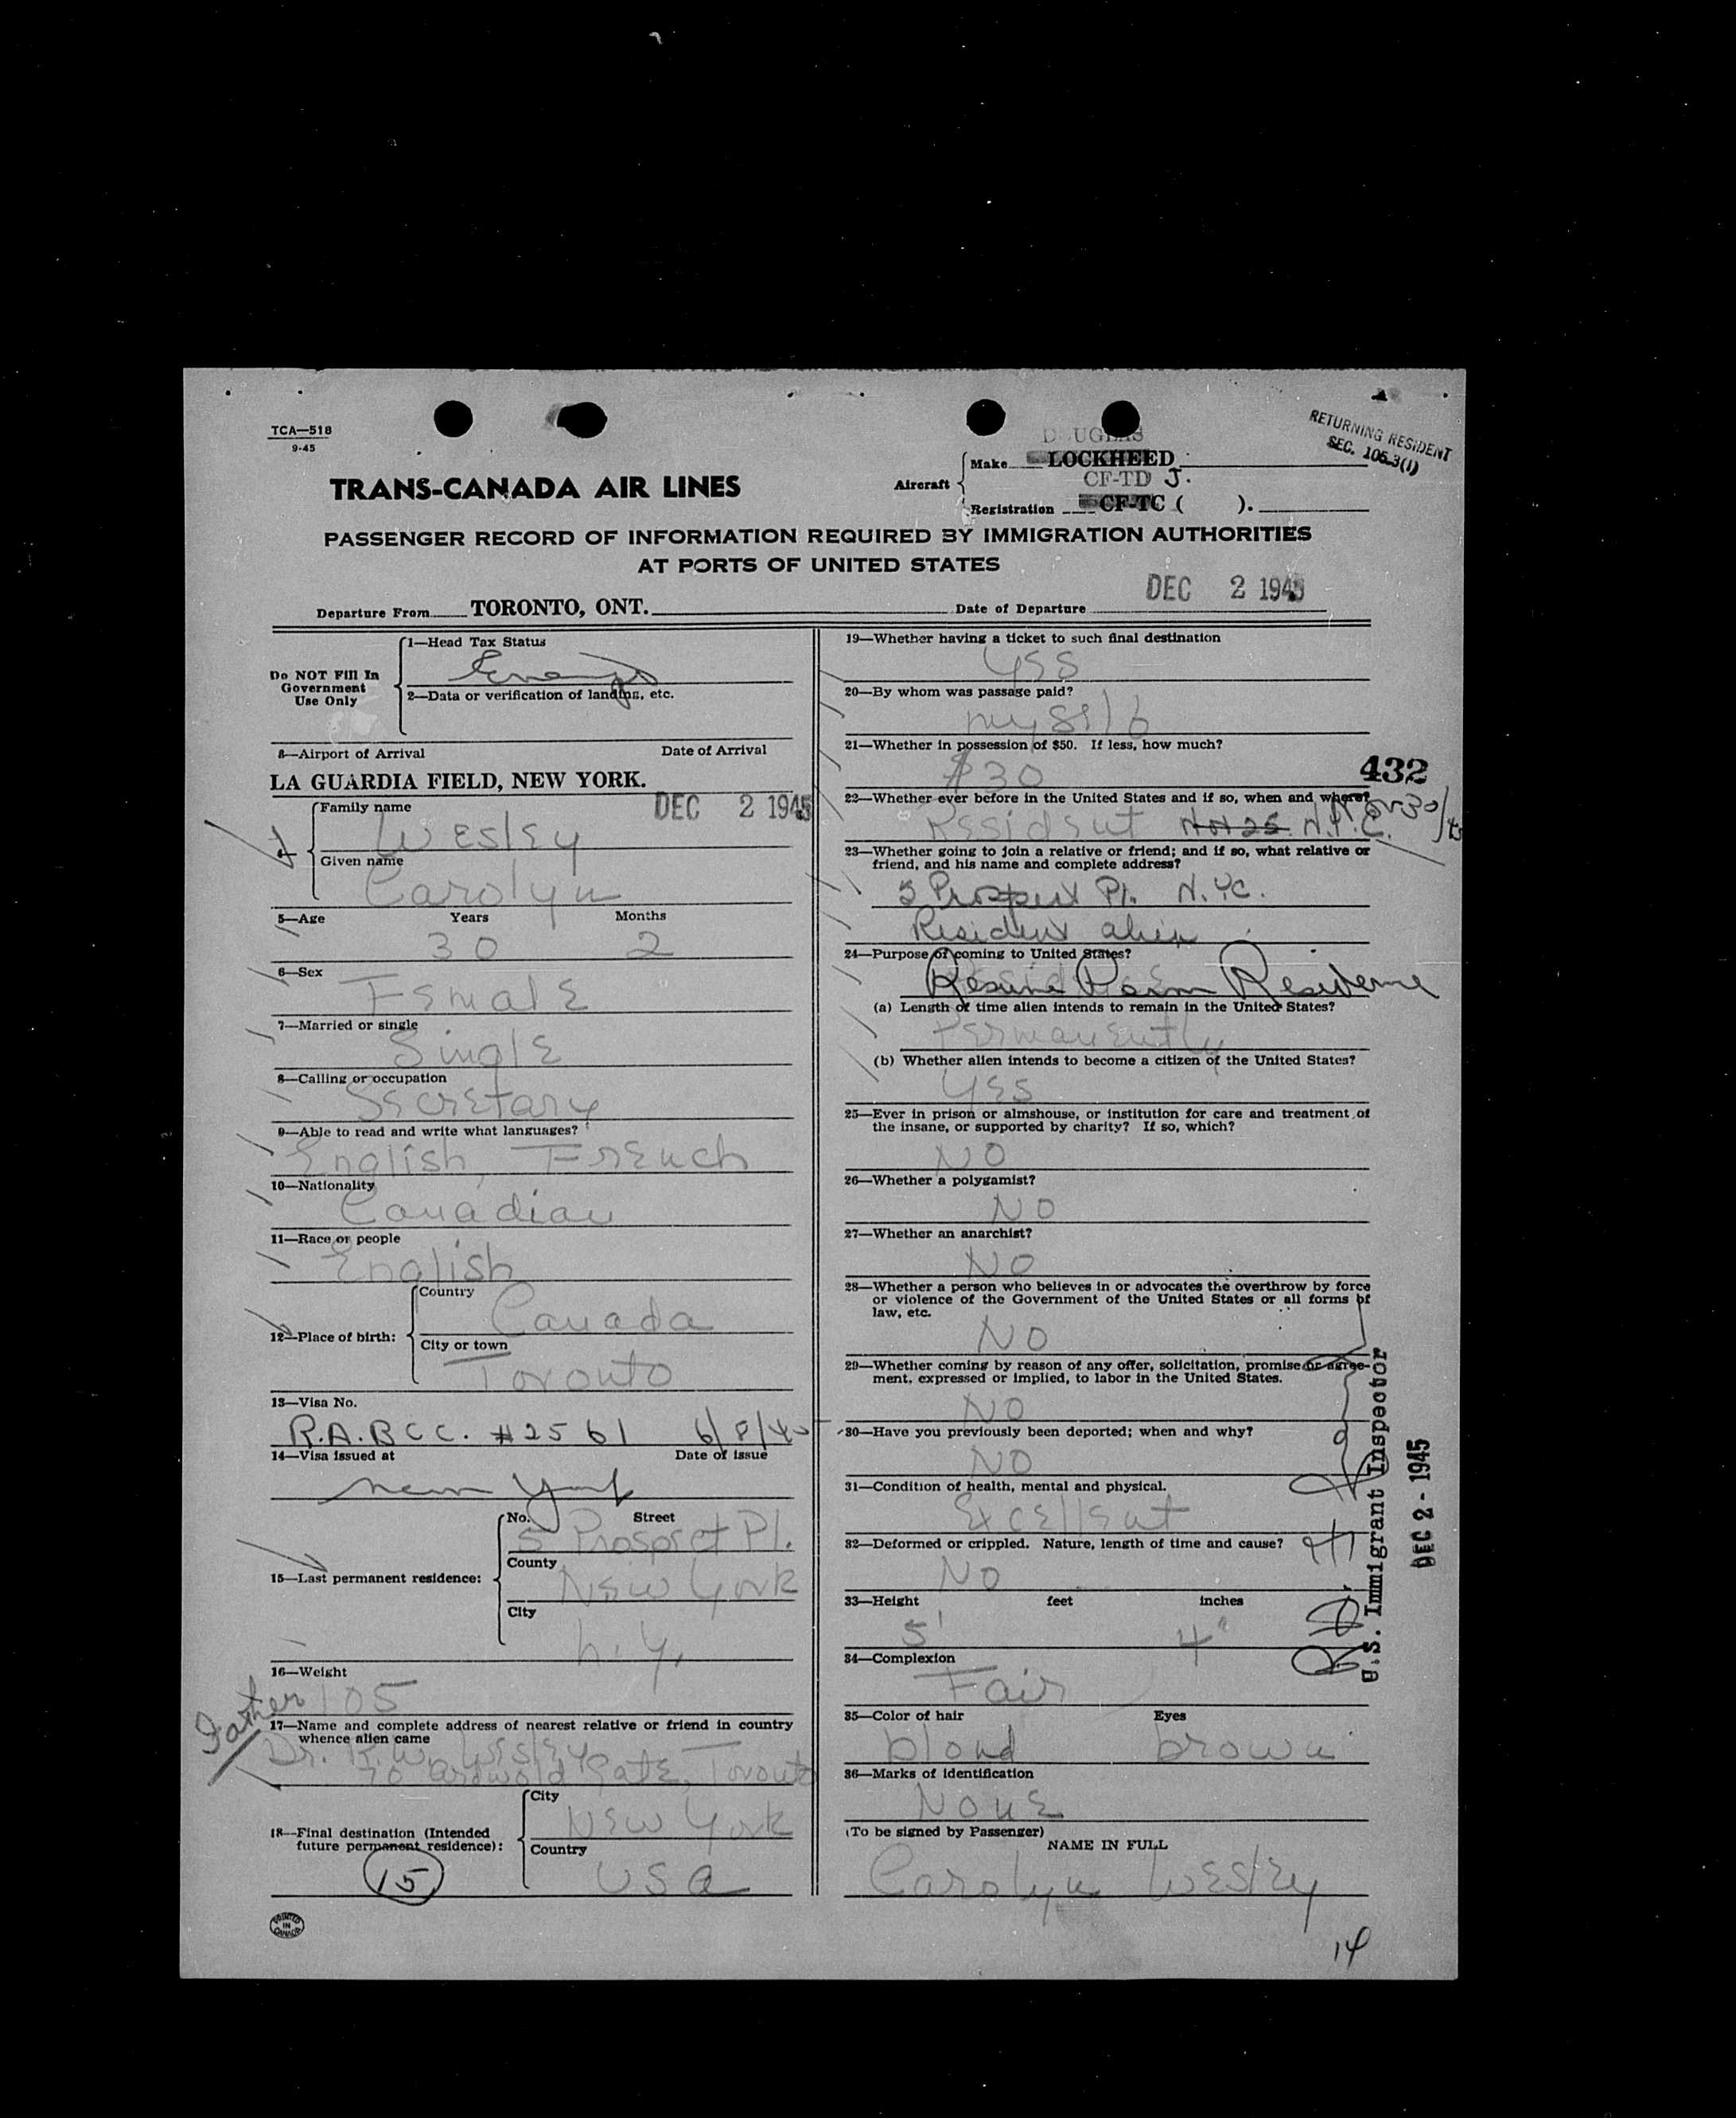 TCA—518
9-45
RETURNING RESIDENT
SEC. 105.3(1)
TRANS-CANADA AIR LINES
Aircraft
DOUGLAS
Make LOCKHEED
CF-TD J.
Registration CF-TC ( ).
PASSENGER RECORD OF INFORMATION REQUIRED BY IMMIGRATION AUTHORITIES
AT PORTS OF UNITED STATES
Departure From TORONTO, ONT. Date of Departure DEC 2 1945
Do NOT Fill In
Government
Use Only
1—Head Tax Status
2—Data or verification of landing, etc.
3—Airport of Arrival Date of Arrival
LA GUARDIA FIELD, NEW YORK.
DEC 2 1945
4
Family name
Wesley
Given name
Carolyn
5—Age Years Months
30 2
6—Sex
Female
7—Married or single
Single
8—Calling or occupation
Secretary
9—Able to read and write what languages?
English, French
10—Nationality
Canadian
11—Race or people
English
12—Place of birth:
Country
Canada
City or town
Toronto
13—Visa No.
R.A.B.C.C. #2561 6/8/45
14—Visa issued at Date of issue
New York
15—Last permanent residence:
No. Street
5 Prospect Pl.
County
New York
City
N.Y.
16—Weight
105
Father
17—Name and complete address of nearest relative or friend in country
whence alien came
Dr. R.W. Wesley
70 Ardwold Gate, Toronto
18—Final destination (Intended
future permanent residence):
City
New York
Country
USA
15
PRINTED
IN
CANADA
19—Whether having a ticket to such final destination
yes
20—By whom was passage paid?
myself
21—Whether in possession of $50. If less, how much?
$30
432
22—Whether ever before in the United States and if so, when and where?
Resident Nov 25 N.Y.C. Nov 30/45
23—Whether going to join a relative or friend; and if so, what relative or
friend, and his name and complete address?
5 Prospect Pl. N.Y.C.
Resident alien
24—Purpose of coming to United States?
Resume Perm Residence
(a) Length of time alien intends to remain in the United States?
Permanently
(b) Whether alien intends to become a citizen of the United States?
Yes
25—Ever in prison or almshouse, or institution for care and treatment of
the insane, or supported by charity? If so, which?
NO
26—Whether a polygamist?
NO
27—Whether an anarchist?
NO
28—Whether a person who believes in or advocates the overthrow by force
or violence of the Government of the United States or all forms of
law, etc.
NO
29—Whether coming by reason of any offer, solicitation, promise or agree-
ment, expressed or implied, to labor in the United States.
NO
30—Have you previously been deported; when and why?
NO
31—Condition of health, mental and physical.
Excellent
32—Deformed or crippled. Nature, length of time and cause?
No
33—Height feet inches
5' 4"
34—Complexion
Fair
35—Color of hair Eyes
blond brown
36—Marks of identification
None
(To be signed by Passenger)
NAME IN FULL
Carolyn Wesley
U.S. Immigrant Inspector
DEC 2 - 1945
14